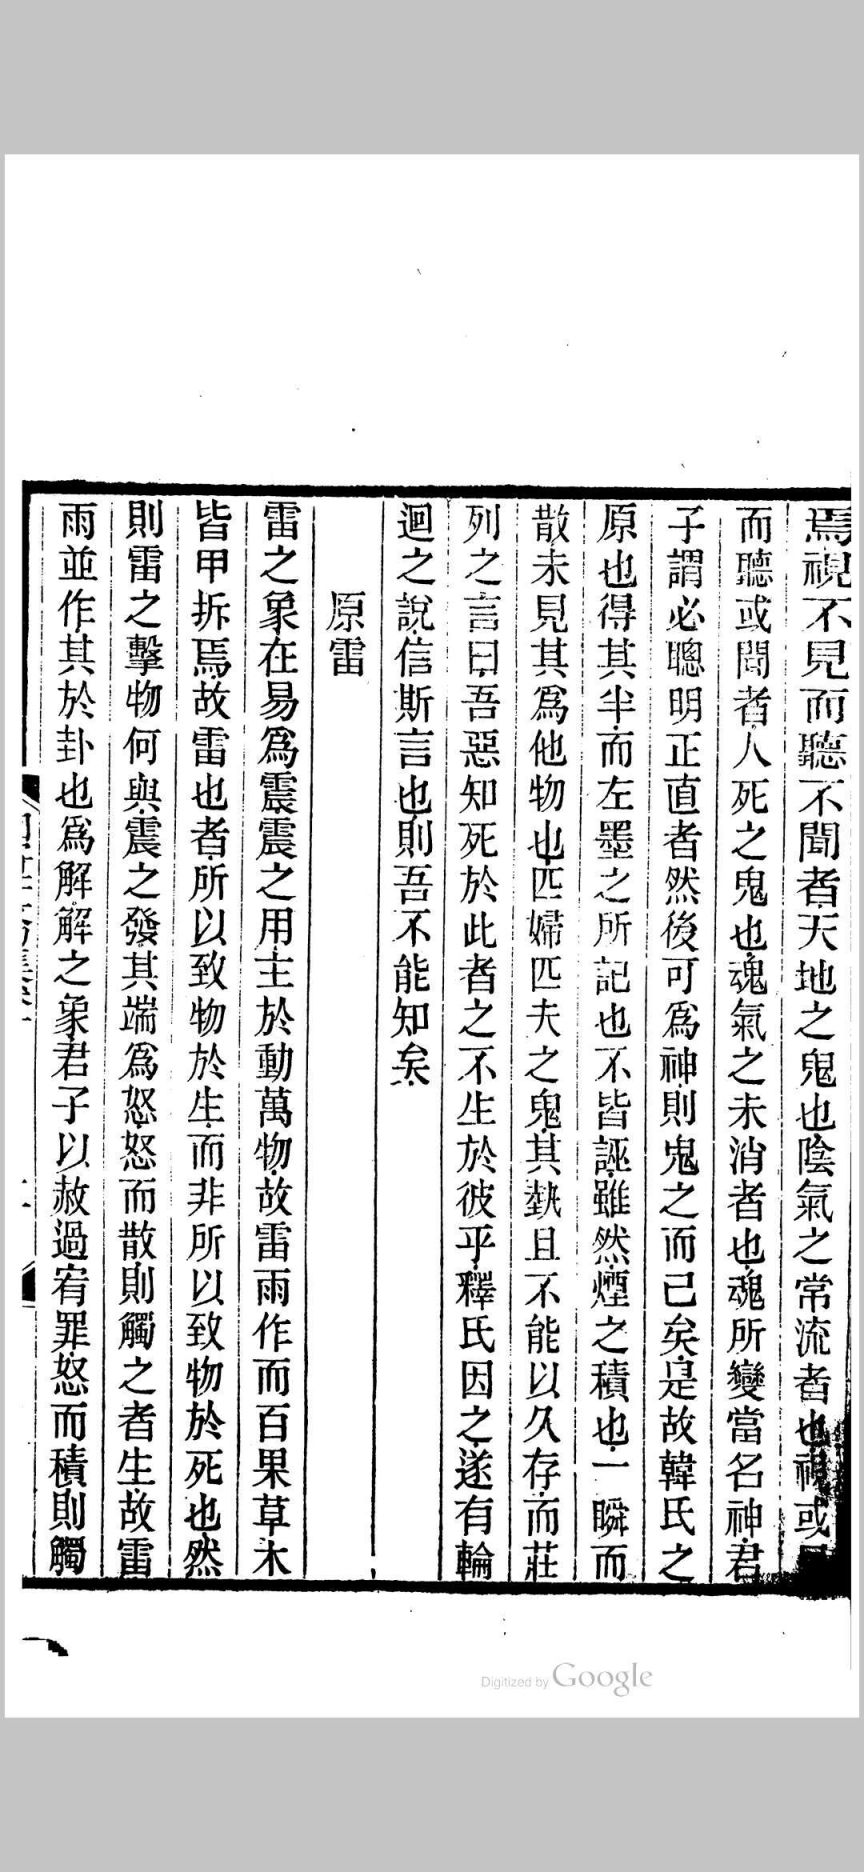 焉視不見而聽不聞者天地之鬼也陰氣之常流者也視或
而聽或聞者人死之鬼也魂氣之未消者也魂所變當名神君
子謂必聰明正直者然後可爲神則鬼之而已矣是故韓氏之
原也得其半而左墨之所記也不皆誣雖然煙之積也一瞬而
散未見其爲他物也匹婦匹夫之鬼其埶且不能以久存而莊
列之言曰吾惡知死於此者之不生於彼乎釋氏因之遂有輪
迴之說信斯言也則吾不能知矣
原雷
雷之象在易爲震震之用主於動萬物故雷雨作而百果草木
皆甲拆焉故雷也者所以致物於生而非所以致物於死也然
則雷之擊物何與震之發其端爲怒怒而散則觸之者生故雷
雨並作其於卦也爲解解之象君子以赦過宥罪怒而積則觸
Digitized by Google